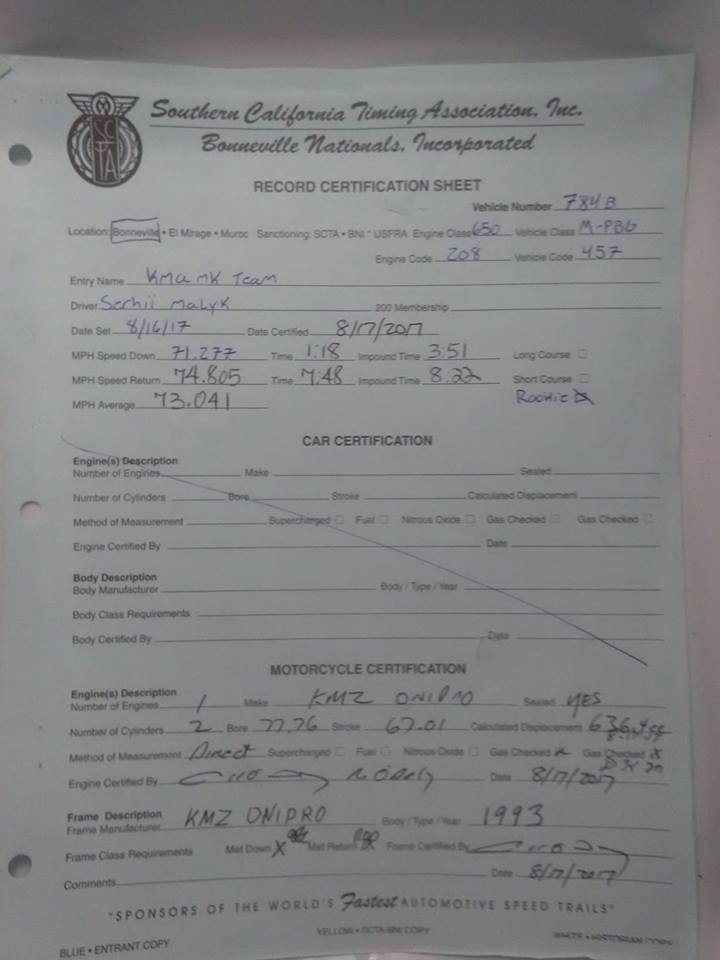 SCTA
Southern California Timing Association, Inc.
Bonneville Nationals, Incorporated
RECORD CERTIFICATION SHEET
Vehicle Number 784B
Location: Bonneville • El Mirage • Muroc Sanctioning: SCTA • BNI * USFRA Engine Class 650 Vehicle Class M-PBG
Engine Code 208 Vehicle Code 457
Entry Name KMZ MK Team
Driver Serhii Malyk 200 Membership
Date Set 8/16/17 Date Certified 8/17/2017
MPH Speed Down 71.277 Time 1:18 Impound Time 3:51 Long Course
MPH Speed Return 74.805 Time 7:48 Impound Time 8:22 Short Course
MPH Average 73.041 Rookie
CAR CERTIFICATION
Engine(s) Description
Number of Engines Make Sealed
Number of Cylinders Bore Stroke Calculated Displacement
Method of Measurement Supercharged Fuel Nitrous Oxide Gas Checked Gas Checked
Engine Certified By Date
Body Description
Body Manufacturer Body / Type / Year
Body Class Requirements
Body Certified By Date
MOTORCYCLE CERTIFICATION
Engine(s) Description
Number of Engines 1 Make KMZ DNIPRO Sealed YES
Number of Cylinders 2 Bore 77.76 Stroke 67.01 Calculated Displacement 636
Method of Measurement Direct Supercharged Fuel Nitrous Oxide Gas Checked Gas Checked X
Engine Certified By Date 8/17/2017
Frame Description
Frame Manufacturer KMZ DNIPRO Body / Type / Year 1993
Frame Class Requirements Met Down X Met Return Frame Certified By
Comments Date 8/17/2017
"SPONSORS OF THE WORLD'S Fastest AUTOMOTIVE SPEED TRAILS"
YELLOW • SCTA-BNI COPY
BLUE • ENTRANT COPY WHITE • HISTORIAN COPY